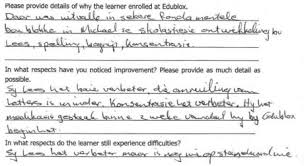 Please provide details of why the learner enrolled at Edublox.
Daar was uitvalle in sekere fondamentele
bou blokke in Michael se skolastiese ontwikkeling bv
Lees, spelling, begrip, konsentrasie.
In what respects have you noticed improvement? Please provide as much detail as
possible.
Sy Lees het baie verbeter
Letters is minder. Konsentrasie het verbeter. Hy het
binne 2 weke vandat hy by Edublox
begin het.
In what respects do the learner still experience difficulties?
Sy Lees het verbeter maar is nog nie op standaard nie